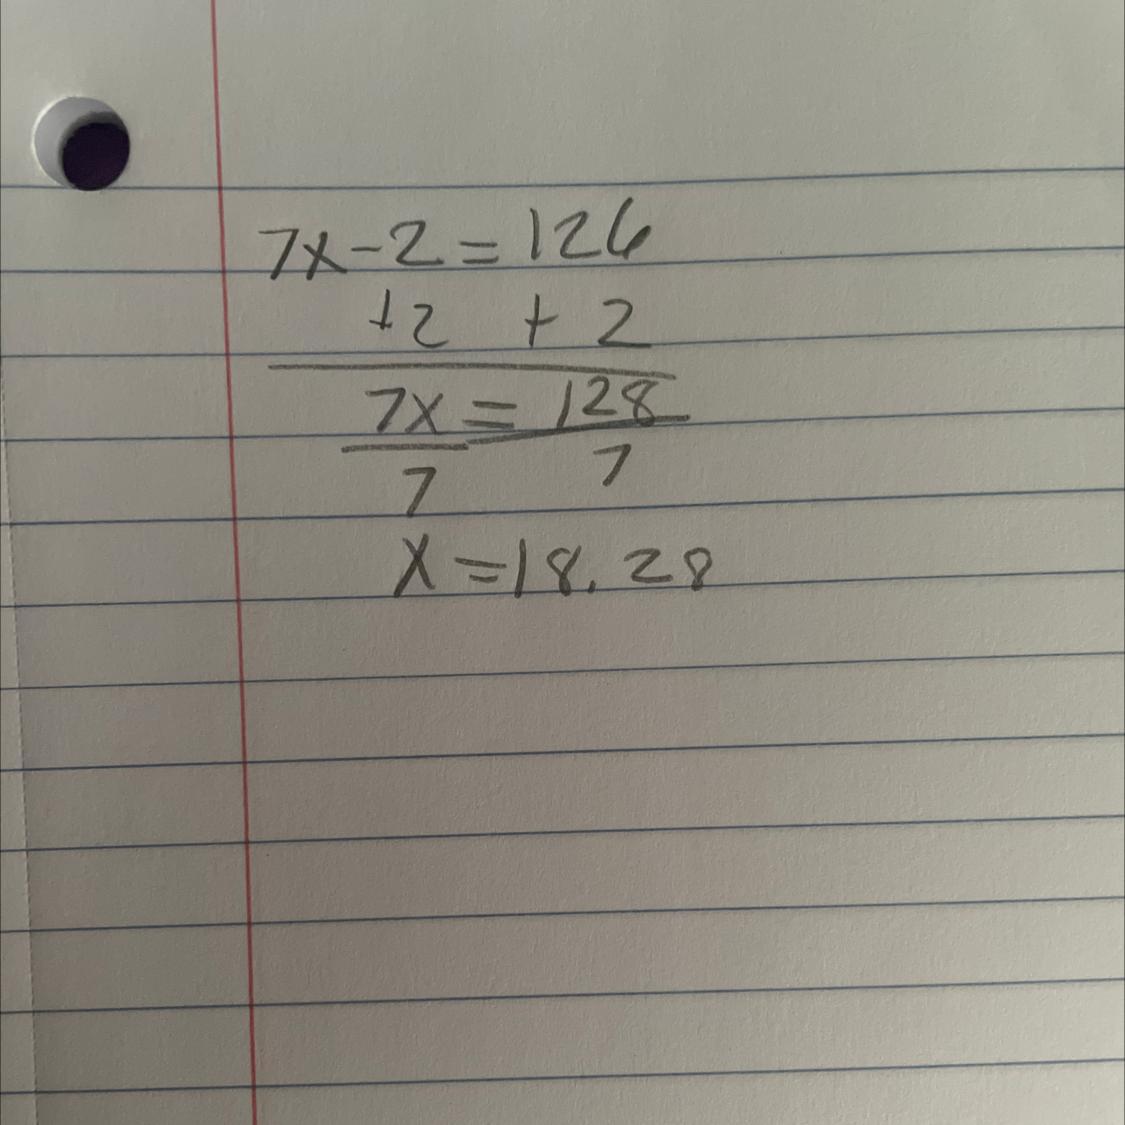 7x-2=126
+2 + 2
7x = 128
7 7
x=18.28